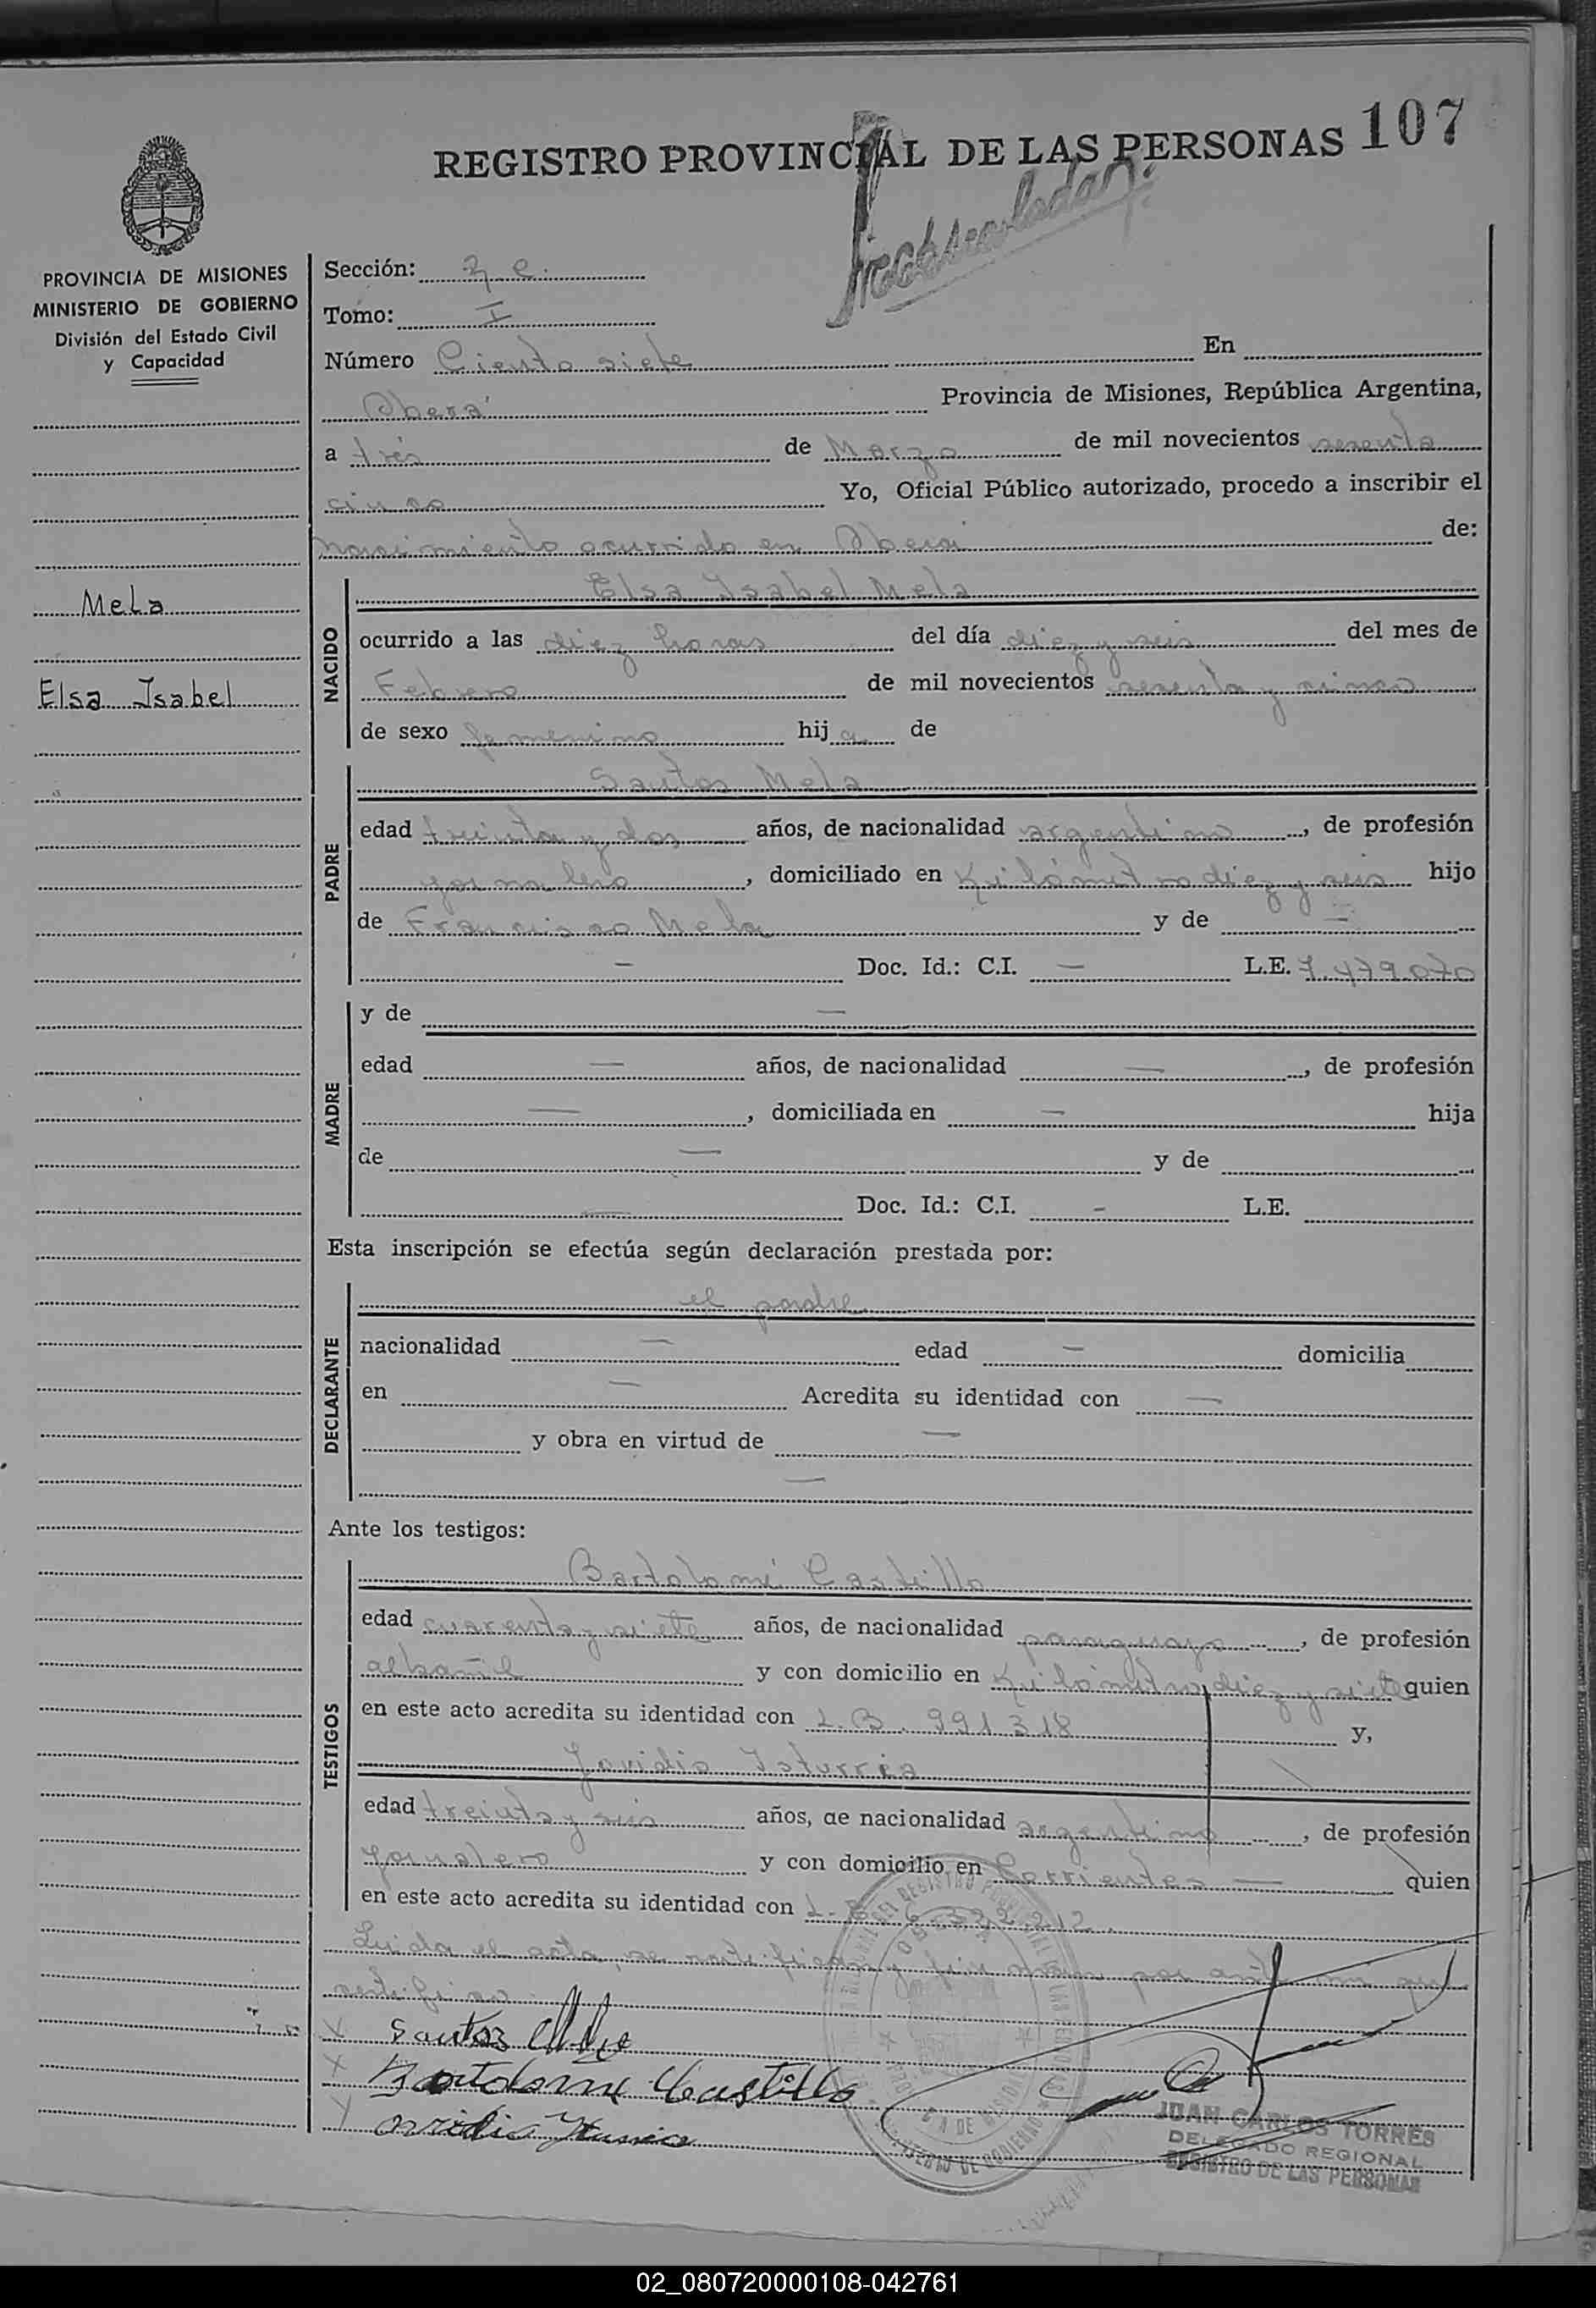 REGISTRO PROVINCIAL DE LAS PERSONAS 107
PROVINCIA DE MISIONES
MINISTERIO DE GOBIERNO
División del Estado Civil
y Capacidad
Mela
Elsa Isabel
Sección:
Tomo: I
Número Ciento siete En
Oberá Provincia de Misiones, República Argentina,
a tres de Marzo de mil novecientos sesenta
cinco Yo, Oficial Público autorizado, procedo a inscribir el
nacimiento ocurrido en Oberá de:
NACIDO
Elsa Isabel Mela
ocurrido a las diez horas del día diez y seis del mes de
Febrero de mil novecientos sesenta y cinco
de sexo femenino hija de
PADRE
Santos Mela
edad treinta y dos años, de nacionalidad argentino, de profesión
jornalero, domiciliado en Kilómetro diez y seis hijo
de Francisco Mela y de —
— Doc. Id.: C.I. — L.E. 7.479.070
MADRE
y de —
edad — años, de nacionalidad —, de profesión
—, domiciliada en — hija
de — y de
— Doc. Id.: C.I. - L.E.
Esta inscripción se efectúa según declaración prestada por:
DECLARANTE
el padre
nacionalidad — edad — domicilia
en — Acredita su identidad con —
y obra en virtud de —
—
Ante los testigos:
TESTIGOS
Bartolomé Castillo
edad cuarenta y siete años, de nacionalidad paraguayo, de profesión
albañil y con domicilio en Kilómetro diez y siete quien
en este acto acredita su identidad con 991318 y,
edad treinta y seis años, de nacionalidad argentino, de profesión
jornalero y con domicilio en Corrientes — quien
en este acto acredita su identidad con
Leida el acta, se ratifican y firman por ante mi que
certifico.
Santos
Bartolome Castillo
JUAN CARLOS TORRES
DELEGADO REGIONAL
REGISTRO DE LAS PERSONAS
02_080720000108-042761